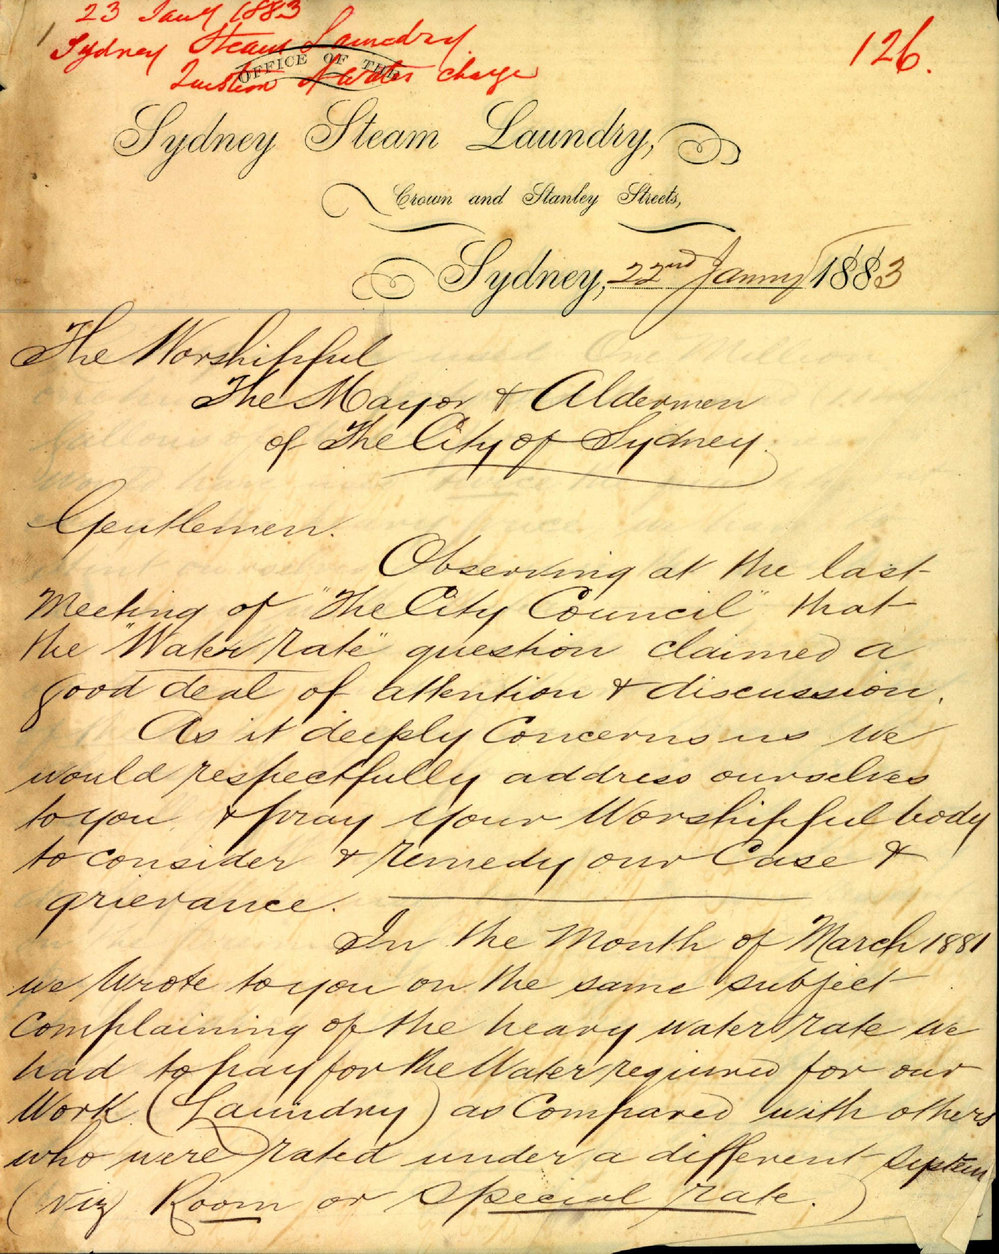 23 Jany 1883
Sydney Steam Laundry
Question of Water Charge
126.
OFFICE OF THE
Sydney Steam Laundry,
Crown and Stanley Streets,
Sydney, 22nd January 1883
The Worshipful
The Mayor & Aldermen
of The City of Sydney.
Gentlemen.
Observing at the last
Meeting of "The City Council" that
the "Water rate" question claimed a
good deal of attention & discussion.
As it deeply Concerns us We
would respectfully address ourselves
to you & pray your Worshipful body
to consider & remedy our Case &
grievance.
In the Month of March 1881
we wrote to you on the same subject
Complaining of the heavy water rate we
had to pay for the Water required for our
Work (Laundry) as Compared with others
who were rated under a different system
(viz Room or Special rate.)